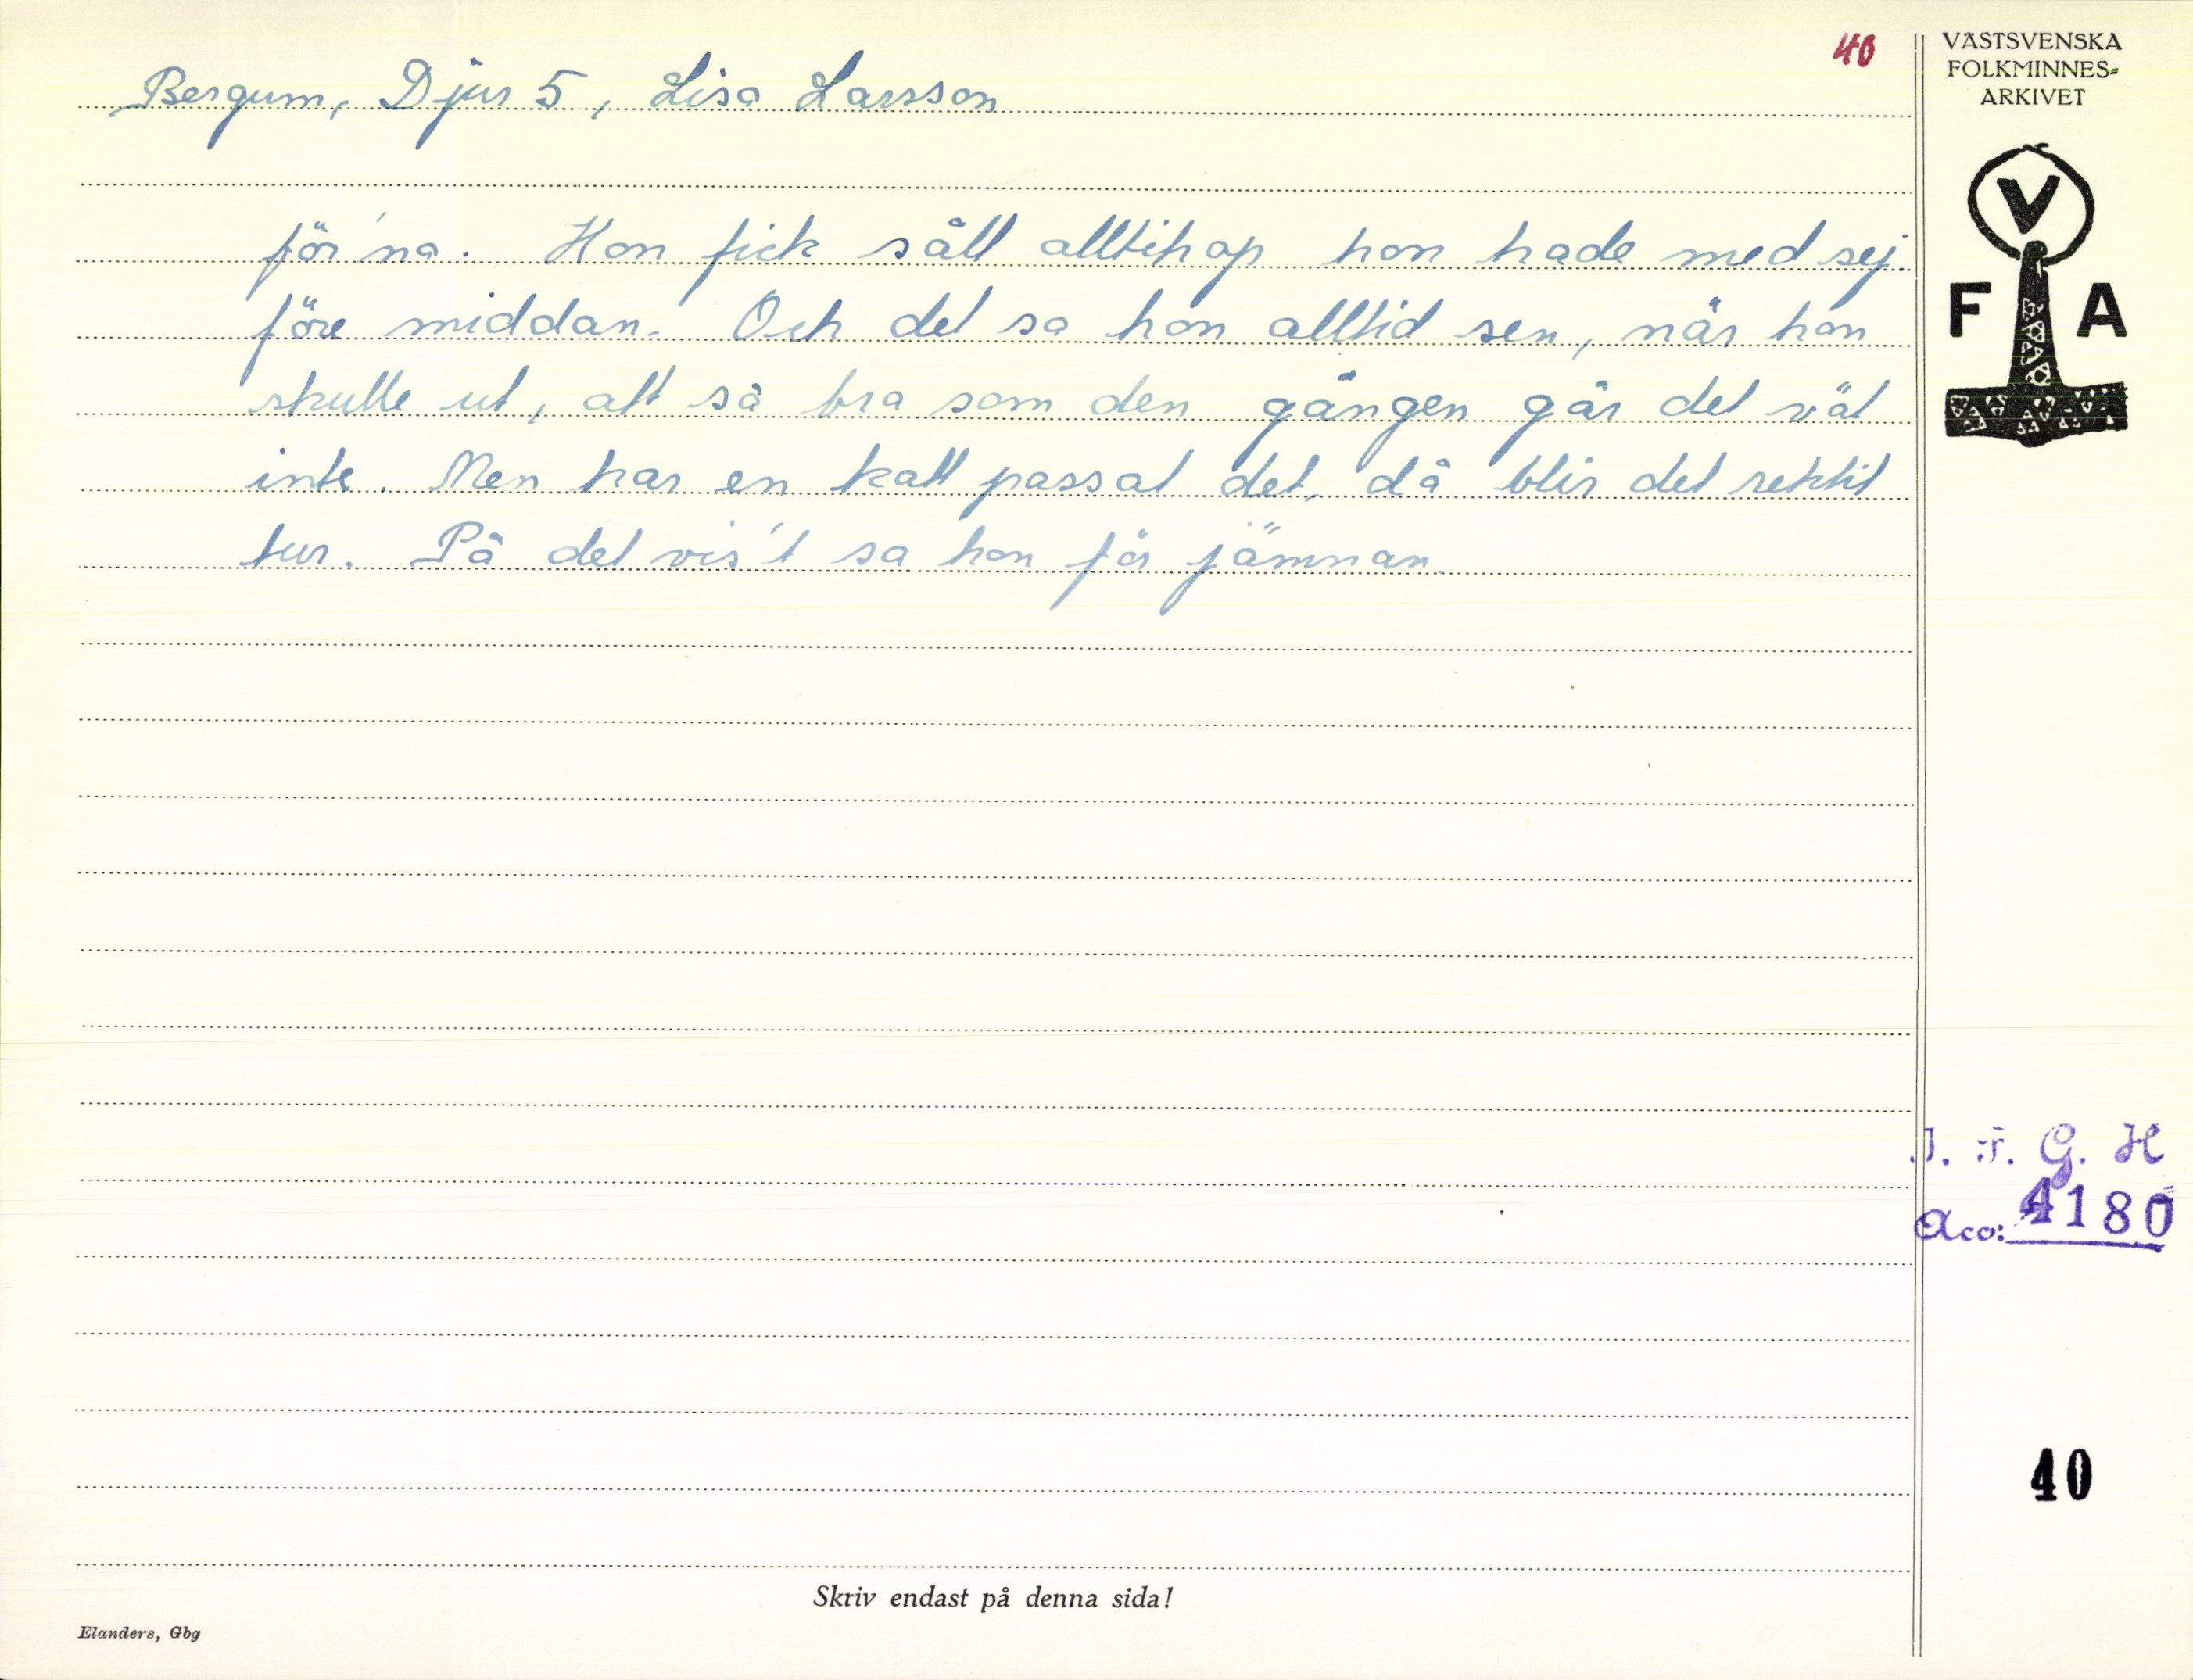 40
Bergum, Djur 5, Lisa Larsson
för'na. Hon fick sält alltihop hon hade med sej.
före middan. Och det sa hon alltid sen, när hon
skulle ut, att så bra som den gången går det väl
inte. Men har en katt passat det, då blir det rektit
tur. På det vis't sa hon för jämnan.
VÄSTSVENSKA
FOLKMINNES-
ARKIVET
V
F A
I. F. G. H
Acc: 4180
40
Skriv endast på denna sida!
Elanders, Gbg